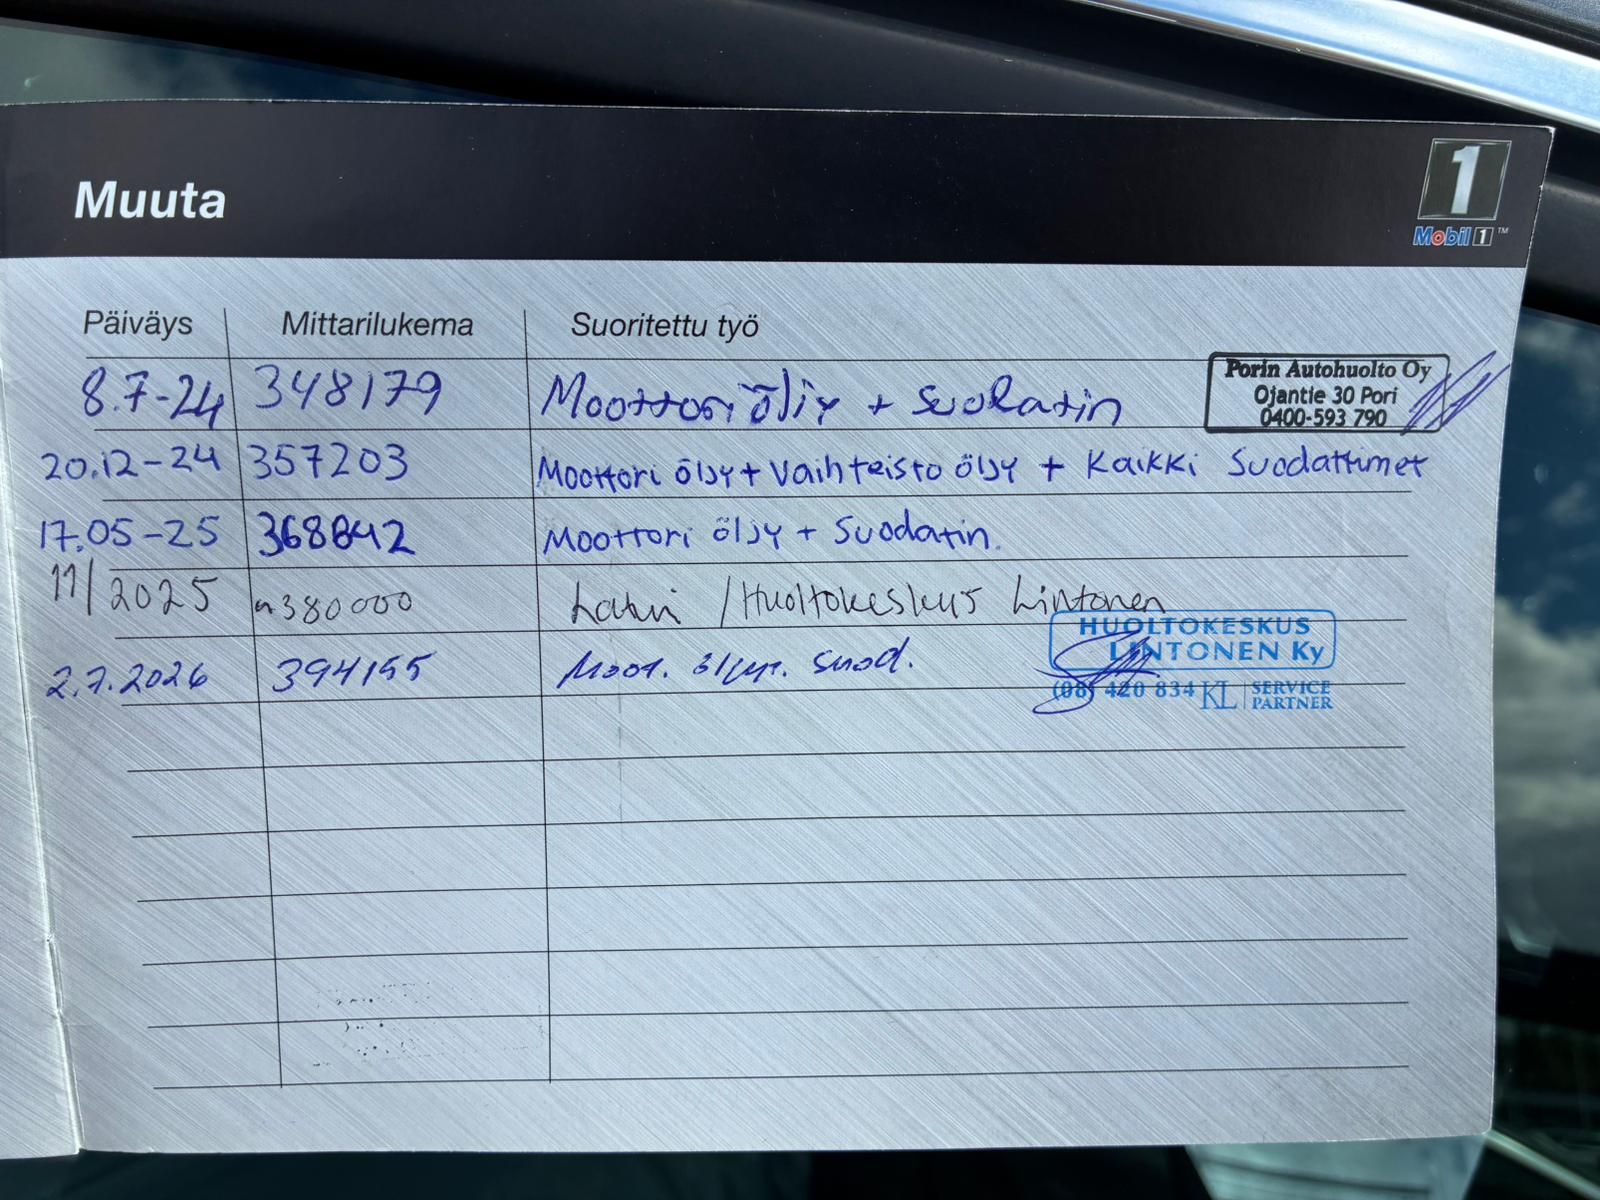 Muuta
1
Mobil 1 ™
Päiväys Mittarilukema Suoritettu työ
8.7-24 348179 Moottori öljy + Suodatin
Porin Autohuolto Oy
Ojantie 30 Pori
0400-593 790
20.12-24 357203 Moottori öljy + Vaihteisto öljy + Kaikki Suodattimet
17.05-25 368842 Moottori öljy + Suodatin.
11/2025 n380000 / Huoltokeskus Lintonen
HUOLTOKESKUS
LINTONEN Ky
(08) 420 834 KL SERVICE
PARTNER
2.7.2026 394155 Moot. suod.